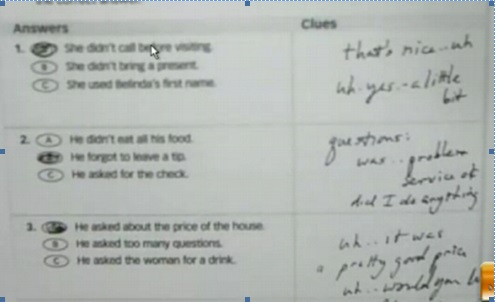 Answers
Clues
1. A She didn't call before visiting.
B She didn't bring a present.
C She used Belinda's first name.
that's nice..uh
uh..yes..a little
bit
2. A He didn't eat all his food.
B He forgot to leave a tip.
C He asked for the check.
questions:
was..problem
service or
did I do anything
3. A He asked about the price of the house.
B He asked too many questions.
C He asked the woman for a drink.
uh..it was
a pretty good price
uh..would you